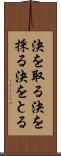 決を取る決を
採る決をとる